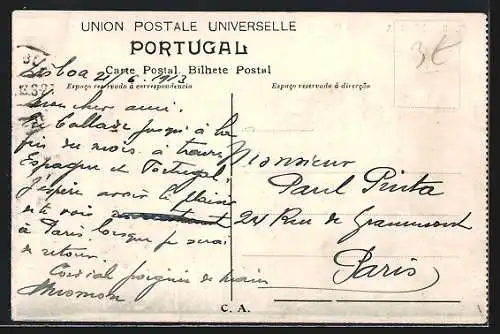 UNION POSTALE UNIVERSELLE
PORTUGAL
Carte Postal. Bilhete Postal
Espaço reservado á correspondencia
Espaço reservado á direcção
3€
Lisboa 21/6.1913
Mon cher ami.
Ballade jusqu'à la
fin du mois à travers
Espagne et Portugal.
J'espère avoir le plaisir
de te voir
à Paris lorsque je serai
de retour.
Cordial poignée de main
Monsieur
Paul Pinta
24 Rue de Grammont
Paris
C. A.